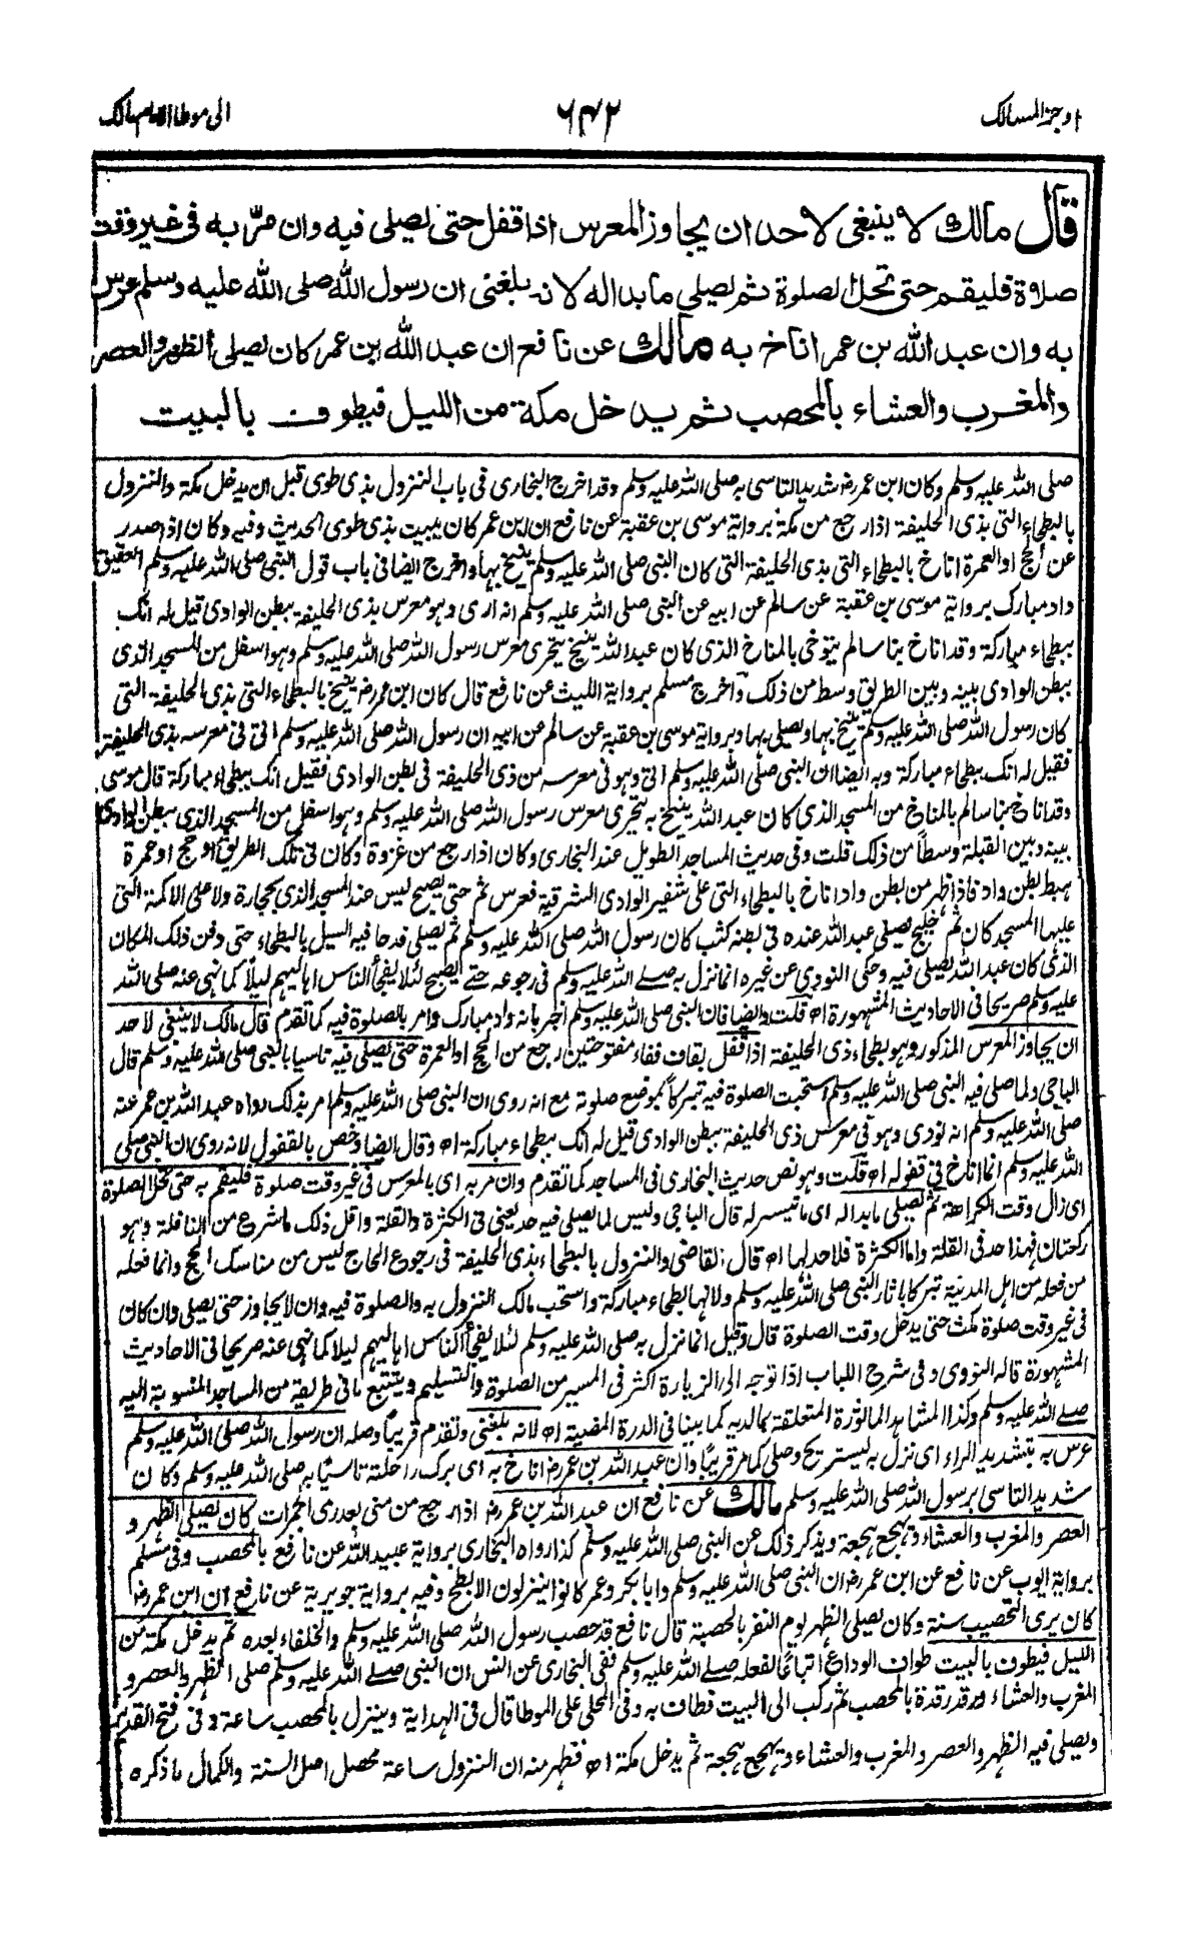 اوجز المسالك
٦٤٢
الى موطا الامام مالك
قال مالك لا ينبغى لاحد ان يجاوز المعرس اذا قفل حتى يصلى فيه وان مرّ به فى غير وقت
صلاة فليقم حتى تحل الصلوة ثم ليصلى ما بدا له لانه بلغنى ان رسول الله صلى الله عليه وسلم عرس
به وان عبد الله بن عمر اناخ به مالك عن نافع ان عبد الله بن عمر كان يصلى الظهر والعصر
والمغرب والعشاء بالمحصب ثم يدخل مكة من الليل فيطوف بالبيت
صلى الله عليه وسلم وكان ابن عمر رض شديد التاسى به صلى الله عليه وسلم وقد اخرج البخارى فى باب النزول بذى طوى قبل ان يدخل مكة والنزول
بالبطحاء التى بذى الحليفة اذا رجع من مكة برواية موسى بن عقبة عن نافع ان ابن عمر كان يبيت بذى طوى الحديث وفيه وكان اذا صدر
عن الحج او العمرة اناخ بالبطحاء التى بذى الحليفة التى كان النبى صلى الله عليه وسلم ينيخ بها واخرج ايضا فى باب قول النبى صلى الله عليه وسلم العقيق
واد مبارك برواية موسى بن عقبة عن سالم عن ابيه عن النبى صلى الله عليه وسلم انه ارى وهو معرس بذى الحليفة ببطن الوادى قيل له انك
ببطحاء مباركة وقد اناخ بنا سالم يتوخى بالمناخ الذى كان عبد الله ينيخ يتحرى معرس رسول الله صلى الله عليه وسلم وهو اسفل من المسجد الذى
ببطن الوادى بينه وبين الطريق وسط من ذلك واخرج مسلم برواية الليث عن نافع قال كان ابن عمر رض ينيخ بالبطحاء التى بذى الحليفة التى
كان رسول الله صلى الله عليه وسلم ينيخ بها ويصلى بها وبرواية موسى بن عقبة عن سالم عن ابيه ان رسول الله صلى الله عليه وسلم اتى فى معرسه بذى الحليفة
فقيل له انك ببطحاء مباركة وبه ايضا ان النبى صلى الله عليه وسلم اتى وهو فى معرسه من ذى الحليفة فى بطن الوادى فقيل انك ببطحاء مباركة قال موسى
وقد اناخ بنا سالم بالمناخ من المسجد الذى كان عبد الله ينيخ به يتحرى معرس رسول الله صلى الله عليه وسلم وهو اسفل من المسجد الذى ببطن الوادى
بينه وبين القبلة وسطا من ذلك قلت وفى حديث المساجد الطويل عند البخارى وكان اذا رجع من غزوة وكان فى تلك الطريق او حج او عمرة
هبط بطن واد فاذا ظهر من بطن واد اناخ بالبطحاء التى على شفير الوادى الشرقية فعرس ثم حتى يصبح ليس عند المسجد الذى بحجارة ولا على الاكمة التى
عليها المسجد كان ثم خليج يصلى عبد الله عنده فى بطنه كثب كان رسول الله صلى الله عليه وسلم ثم يصلى فدحا فيه السيل بالبطحاء حتى دفن ذلك المكان
الذى كان عبد الله يصلى فيه وحكى النووى عن غيره انما نزل به صلى الله عليه وسلم فى رجوعه حتى يصبح لئلا يفجأ الناس اهاليهم ليلا كما نهى عنه صلى الله
عليه وسلم صريحا فى الاحاديث المشهورة اه قلت وايضا فان النبى صلى الله عليه وسلم اخبر بانه واد مبارك وامر بالصلوة فيه كما تقدم قال مالك لا ينبغى لاحد
ان يجاوز المعرس المذكور وهو بطحاء ذى الحليفة اذا قفل بقاف ففاء مفتوحتين رجع من الحج او العمرة حتى يصلى فيه تاسيا بالنبى صلى الله عليه وسلم قال
الباجى ولما صلى فيه النبى صلى الله عليه وسلم استحبت الصلوة فيه تبركا بموضع صلوته مع انه روى ان النبى صلى الله عليه وسلم امر بذلك رواه عبد الله بن عمر عنه
صلى الله عليه وسلم انه نودى وهو فى معرس ذى الحليفة ببطن الوادى قيل له انك ببطحاء مباركة اه وقال ايضا وخص بالقفول لانه روى ان النبى صلى
الله عليه وسلم انما اناخ فى قفوله اه قلت وهو نص حديث البخارى فى المساجد كما تقدم وان مر به اى بالمعرس فى غير وقت صلوة فليقم به حتى تحل الصلوة
اى زال وقت الكراهة ثم ليصلى ما بدا له اى ما تيسر له قال الباجى وليس لما يصلى فيه حد يعنى فى الكثرة والقلة واقل ذلك ما شرع من النافلة وهو
ركعتان فهذا حد فى القلة واما الكثرة فلا حد لها اه قال القاضى والنزول بالبطحاء بذى الحليفة فى رجوع الحاج ليس من مناسك الحج وانما فعله
من فعله من اهل المدينة تبركا باثار النبى صلى الله عليه وسلم ولانها بطحاء مباركة واستحب مالك النزول به والصلوة فيه وان لا يجاوز حتى يصلى وان كان
فى غير وقت صلوة مكث حتى يدخل وقت الصلوة قال وقيل انما نزل به صلى الله عليه وسلم لئلا يفجأ الناس اهاليهم ليلا كما نهى عنه صريحا فى الاحاديث
المشهورة قاله النووى وفى شرح اللباب اذا توجه الى الزيارة اكثر فى المسير من الصلوة والتسليم ويتتبع ما فى طريقه من المساجد المنسوبة اليه
صلى الله عليه وسلم وكذا المشاهد الماثورة المتعلقة بما لديه كما بينا فى الدرة المضية اه لانه بلغنى وتقدم قريبا وصله ان رسول الله صلى الله عليه وسلم
عرس به بتشديد الراء اى نزل به ليستريح وصلى كما مر قريبا وان عبد الله بن عمر رض اناخ به اى برك راحلته تاسيا به صلى الله عليه وسلم وكان
شديد التاسى برسول الله صلى الله عليه وسلم مالك عن نافع ان عبد الله بن عمر رض اذا رجع من منى بعد رمى الجمرات كان يصلى الظهر و
العصر والمغرب والعشاء ويهجع هجعة ويذكر ذلك عن النبى صلى الله عليه وسلم كذا رواه البخارى برواية عبيد الله عن نافع بالمحصب وفى مسلم
برواية ايوب عن نافع عن ابن عمر رض ان النبى صلى الله عليه وسلم وابا بكر وعمر كانوا ينزلون الابطح وفيه برواية جويرية عن نافع ان ابن عمر رض
كان يرى التحصيب سنة وكان يصلى الظهر يوم النفر بالحصبة قال نافع قد حصب رسول الله صلى الله عليه وسلم والخلفاء بعده ثم يدخل مكة من
الليل فيطوف بالبيت طواف الوداع اتباعا لفعله صلى الله عليه وسلم ففى البخارى عن انس ان النبى صلى الله عليه وسلم صلى الظهر والعصر و
المغرب والعشاء ورقد رقدة بالمحصب ثم ركب الى البيت فطاف به وفى المحلى على الموطا قال فى الهداية وينزل بالمحصب ساعة وفى فتح القدير
ويصلى فيه الظهر والعصر والمغرب والعشاء ويهجع هجعة ثم يدخل مكة اه فظهر منه ان النزول ساعة محصل اصل السنة والكمال ما ذكره